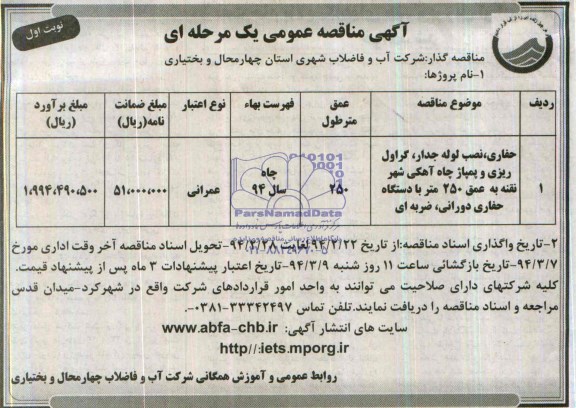 نوبت اول
آگهی مناقصه عمومی یک مرحله ای
مناقصه گذار:شرکت آب و فاضلاب شهری استان چهارمحال و بختیاری
۱-نام پروژها:
ردیف
موضوع مناقصه
عمق مترطول
فهرست بهاء
نوع اعتبار
مبلغ ضمانت نامه(ریال)
مبلغ برآورد (ریال)
۱
حفاری،نصب لوله جدار، گراول
ریزی و پمپاژ چاه آهکی شهر
نقنه به عمق ۲۵۰ متر با دستگاه
حفاری دورانی، ضربه ای
۲۵۰
چاه
سال ۹۴
عمرانی
۵۱،۰۰۰،۰۰۰
۱،۹۹۴،۴۹۰،۵۰۰
ParsNamadData
۲-تاریخ واگذاری اسناد مناقصه:از تاریخ ۹۴/۲/۲۲ لغایت ۹۴/۲/۲۸-تحویل اسناد مناقصه آخر وقت اداری مورخ
۹۴/۳/۷-تاریخ بازگشائی ساعت ۱۱ روز شنبه ۹۴/۳/۹-تاریخ اعتبار پیشنهادات ۳ ماه پس از پیشنهاد قیمت.
کلیه شرکتهای دارای صلاحیت می توانند به واحد امور قراردادهای شرکت واقع در شهرکرد-میدان قدس
مراجعه و اسناد مناقصه را دریافت نمایند.تلفن تماس ۳۳۳۴۲۴۹۷-۰۳۸۱-.
سایت های انتشار آگهی: www.abfa-chb.ir
http//:iets.mporg.ir
روابط عمومی و آموزش همگانی شرکت آب و فاضلاب چهارمحال و بختیاری